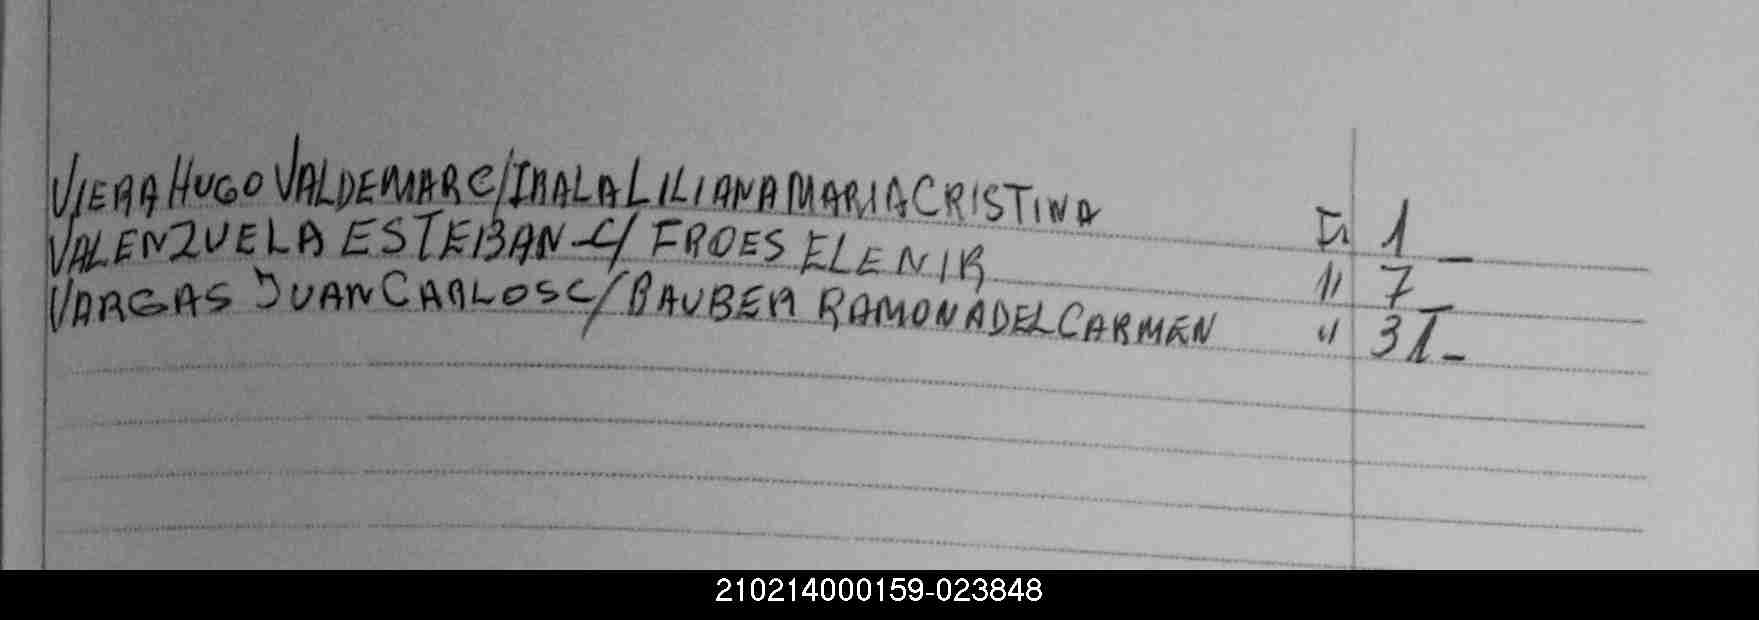 VIERA HUGO VALDEMAR C/ IRALA LILIANA MARIA CRISTINA 1_
VALENZUELA ESTEBAN C/ FROES ELENIR " 7_
VARGAS JUAN CARLOS C/ BAUBER RAMONA DEL CARMEN " 31_
210214000159-023848